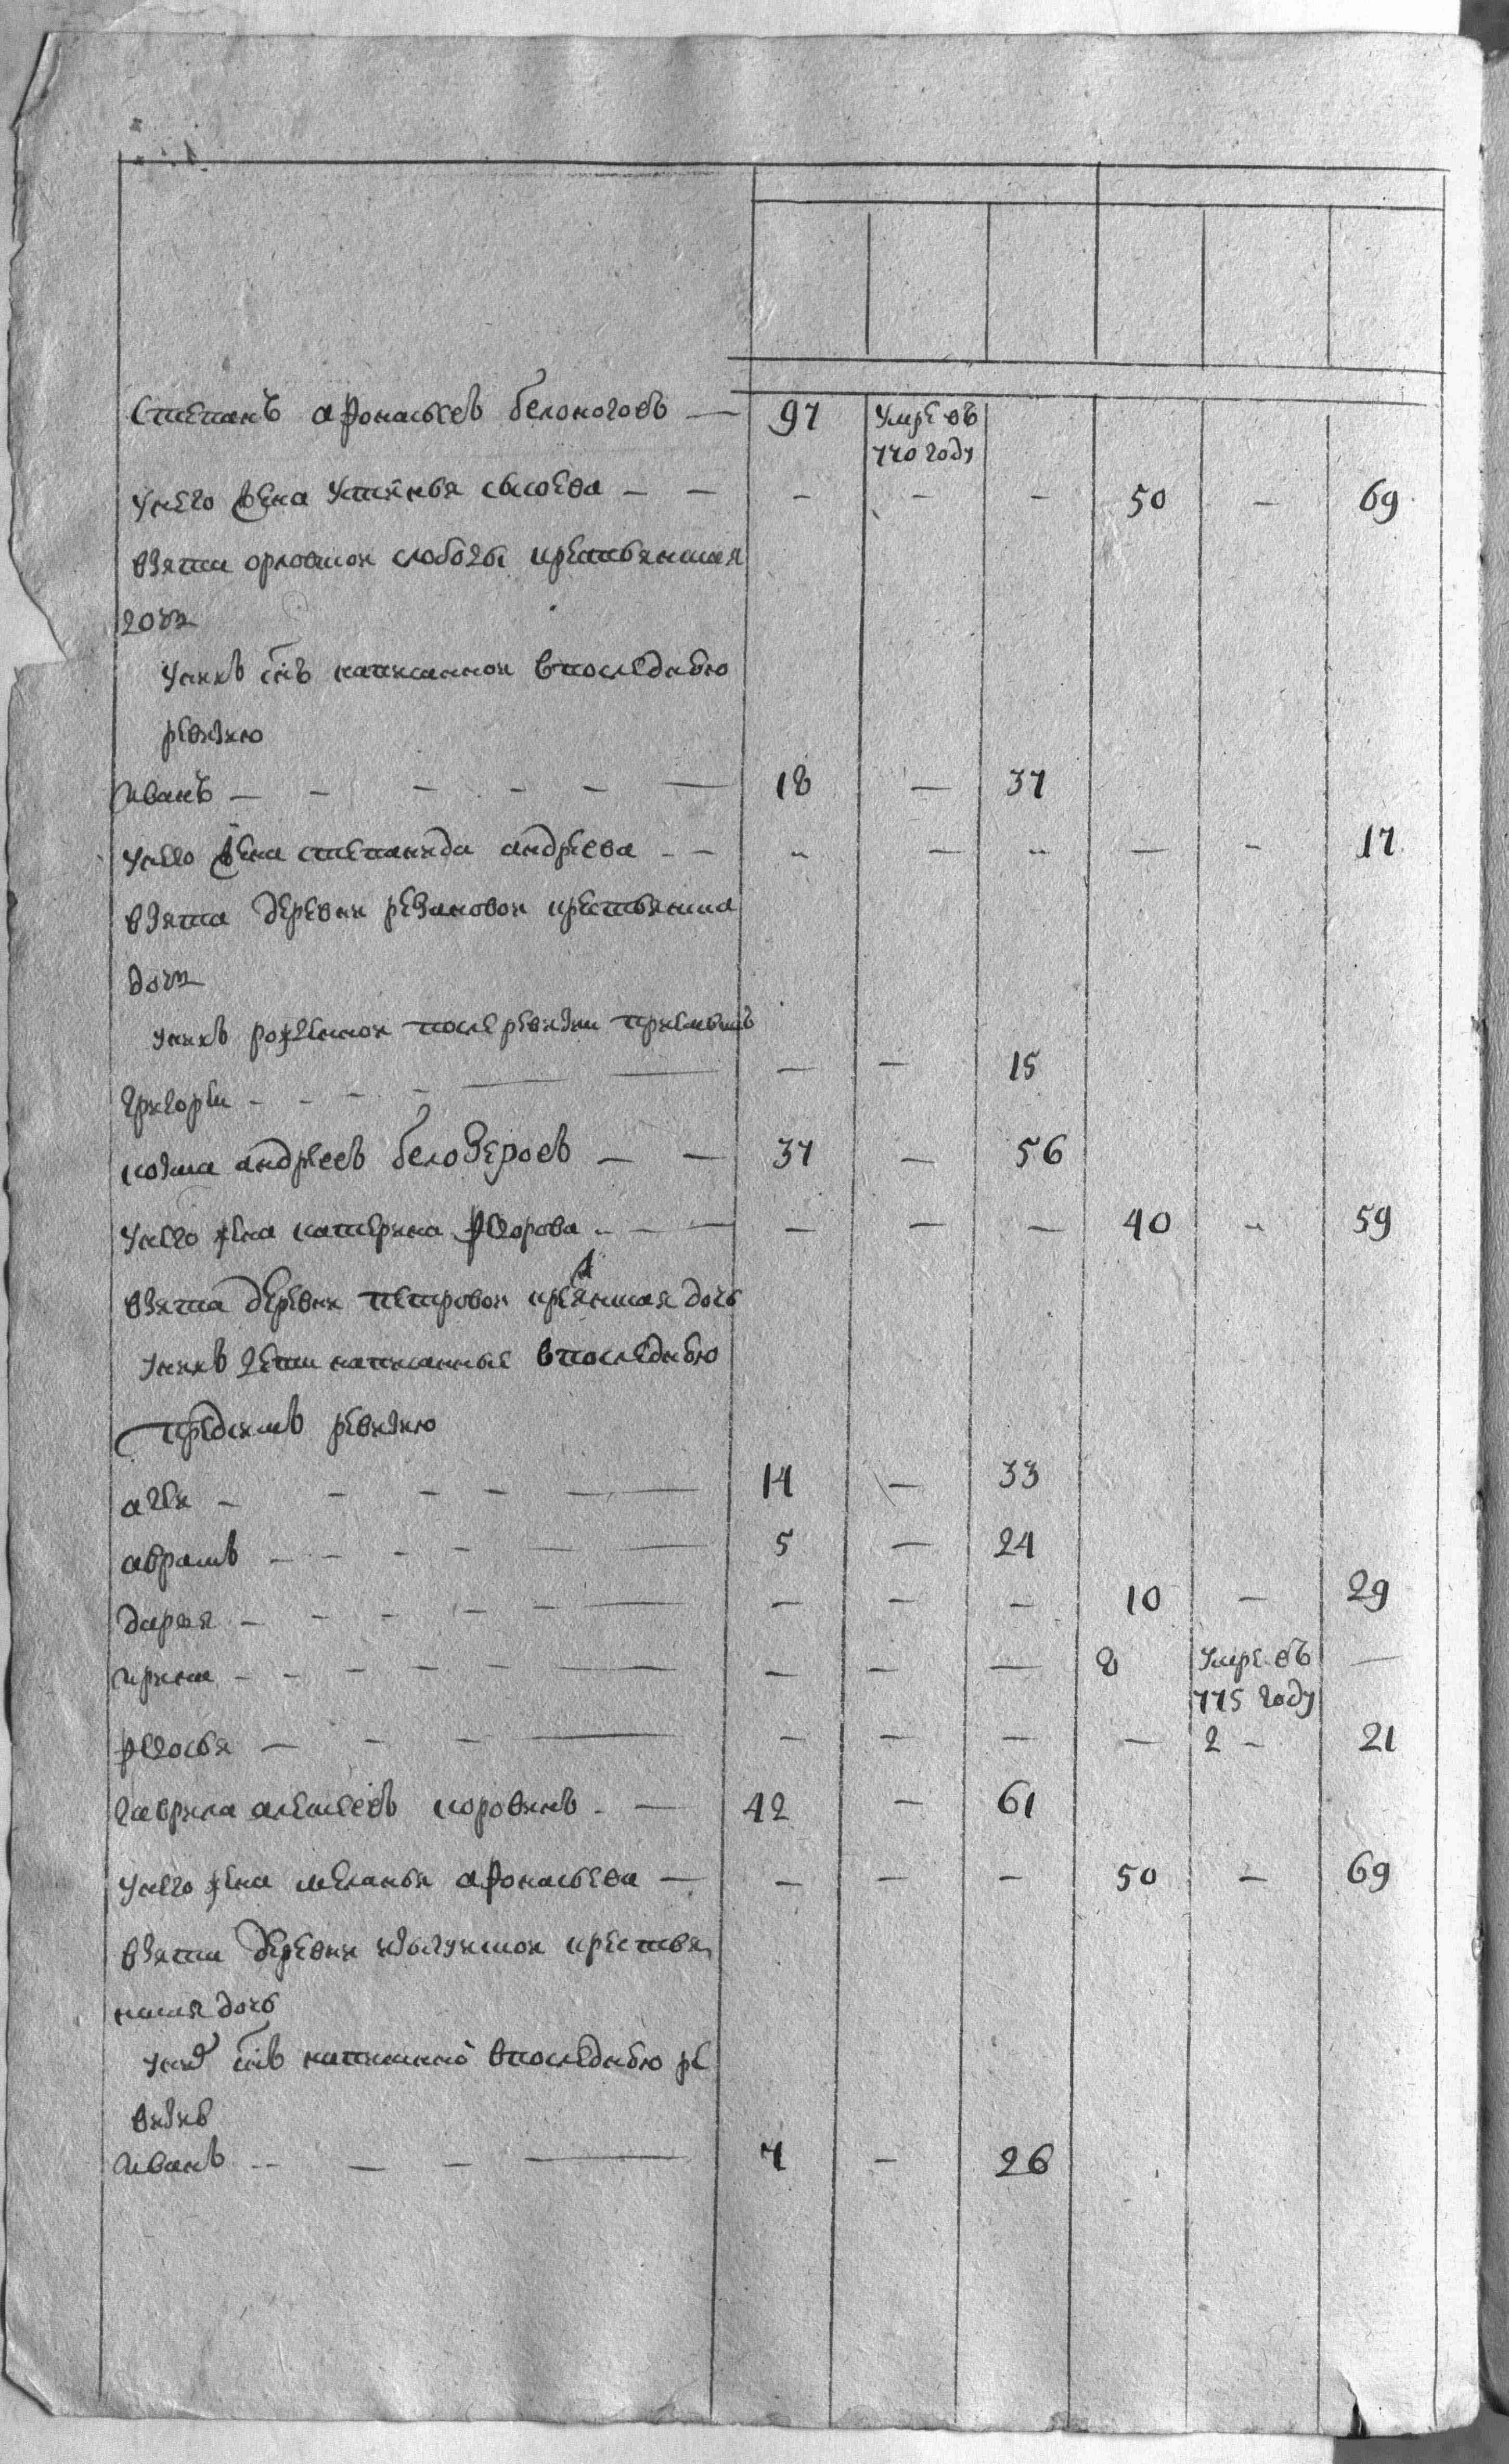 Степанъ афонасьевъ белоноговъ — 97 умре въ
770 году
унего жена устинья сысоева — — - - - 50 — 69
взята орловской слободы крестьянская
дочь
унихъ снъ написанной впоследнюю
ревизию
иванъ — - - - - — 18 — 37
унего жена степанида андреева - - - — - — - 17
взята деревни резановой крестьянска
дочь
унихъ рожденной после ревизии приемышъ
григореи - - - - — — — - 15
козма андреевъ белозеровъ — — 37 — 56
унего жена катерина федорова - — — — — — 40 - 59
взята деревни петровой кресянская дочь
унихъ дети написанные впоследнюю
предсимъ ревизию
агеи - - - - — 14 — 33
абрамъ - - - - — — 5 — 24
дарья - - - - - — — — - 10 — 29
ирина - - - - - — — — — 8 умре въ —
775 году
федосья — - - — — — — — 2 - 21
гаврила алексеевъ коровинъ - — 42 - 61
унего жена меланья афонасьева — — — — 50 — 69
взята деревни крестья
нская дочь
унихъ снъ написанной впоследнюю ре
визию
иванъ - — - — 7 - 26